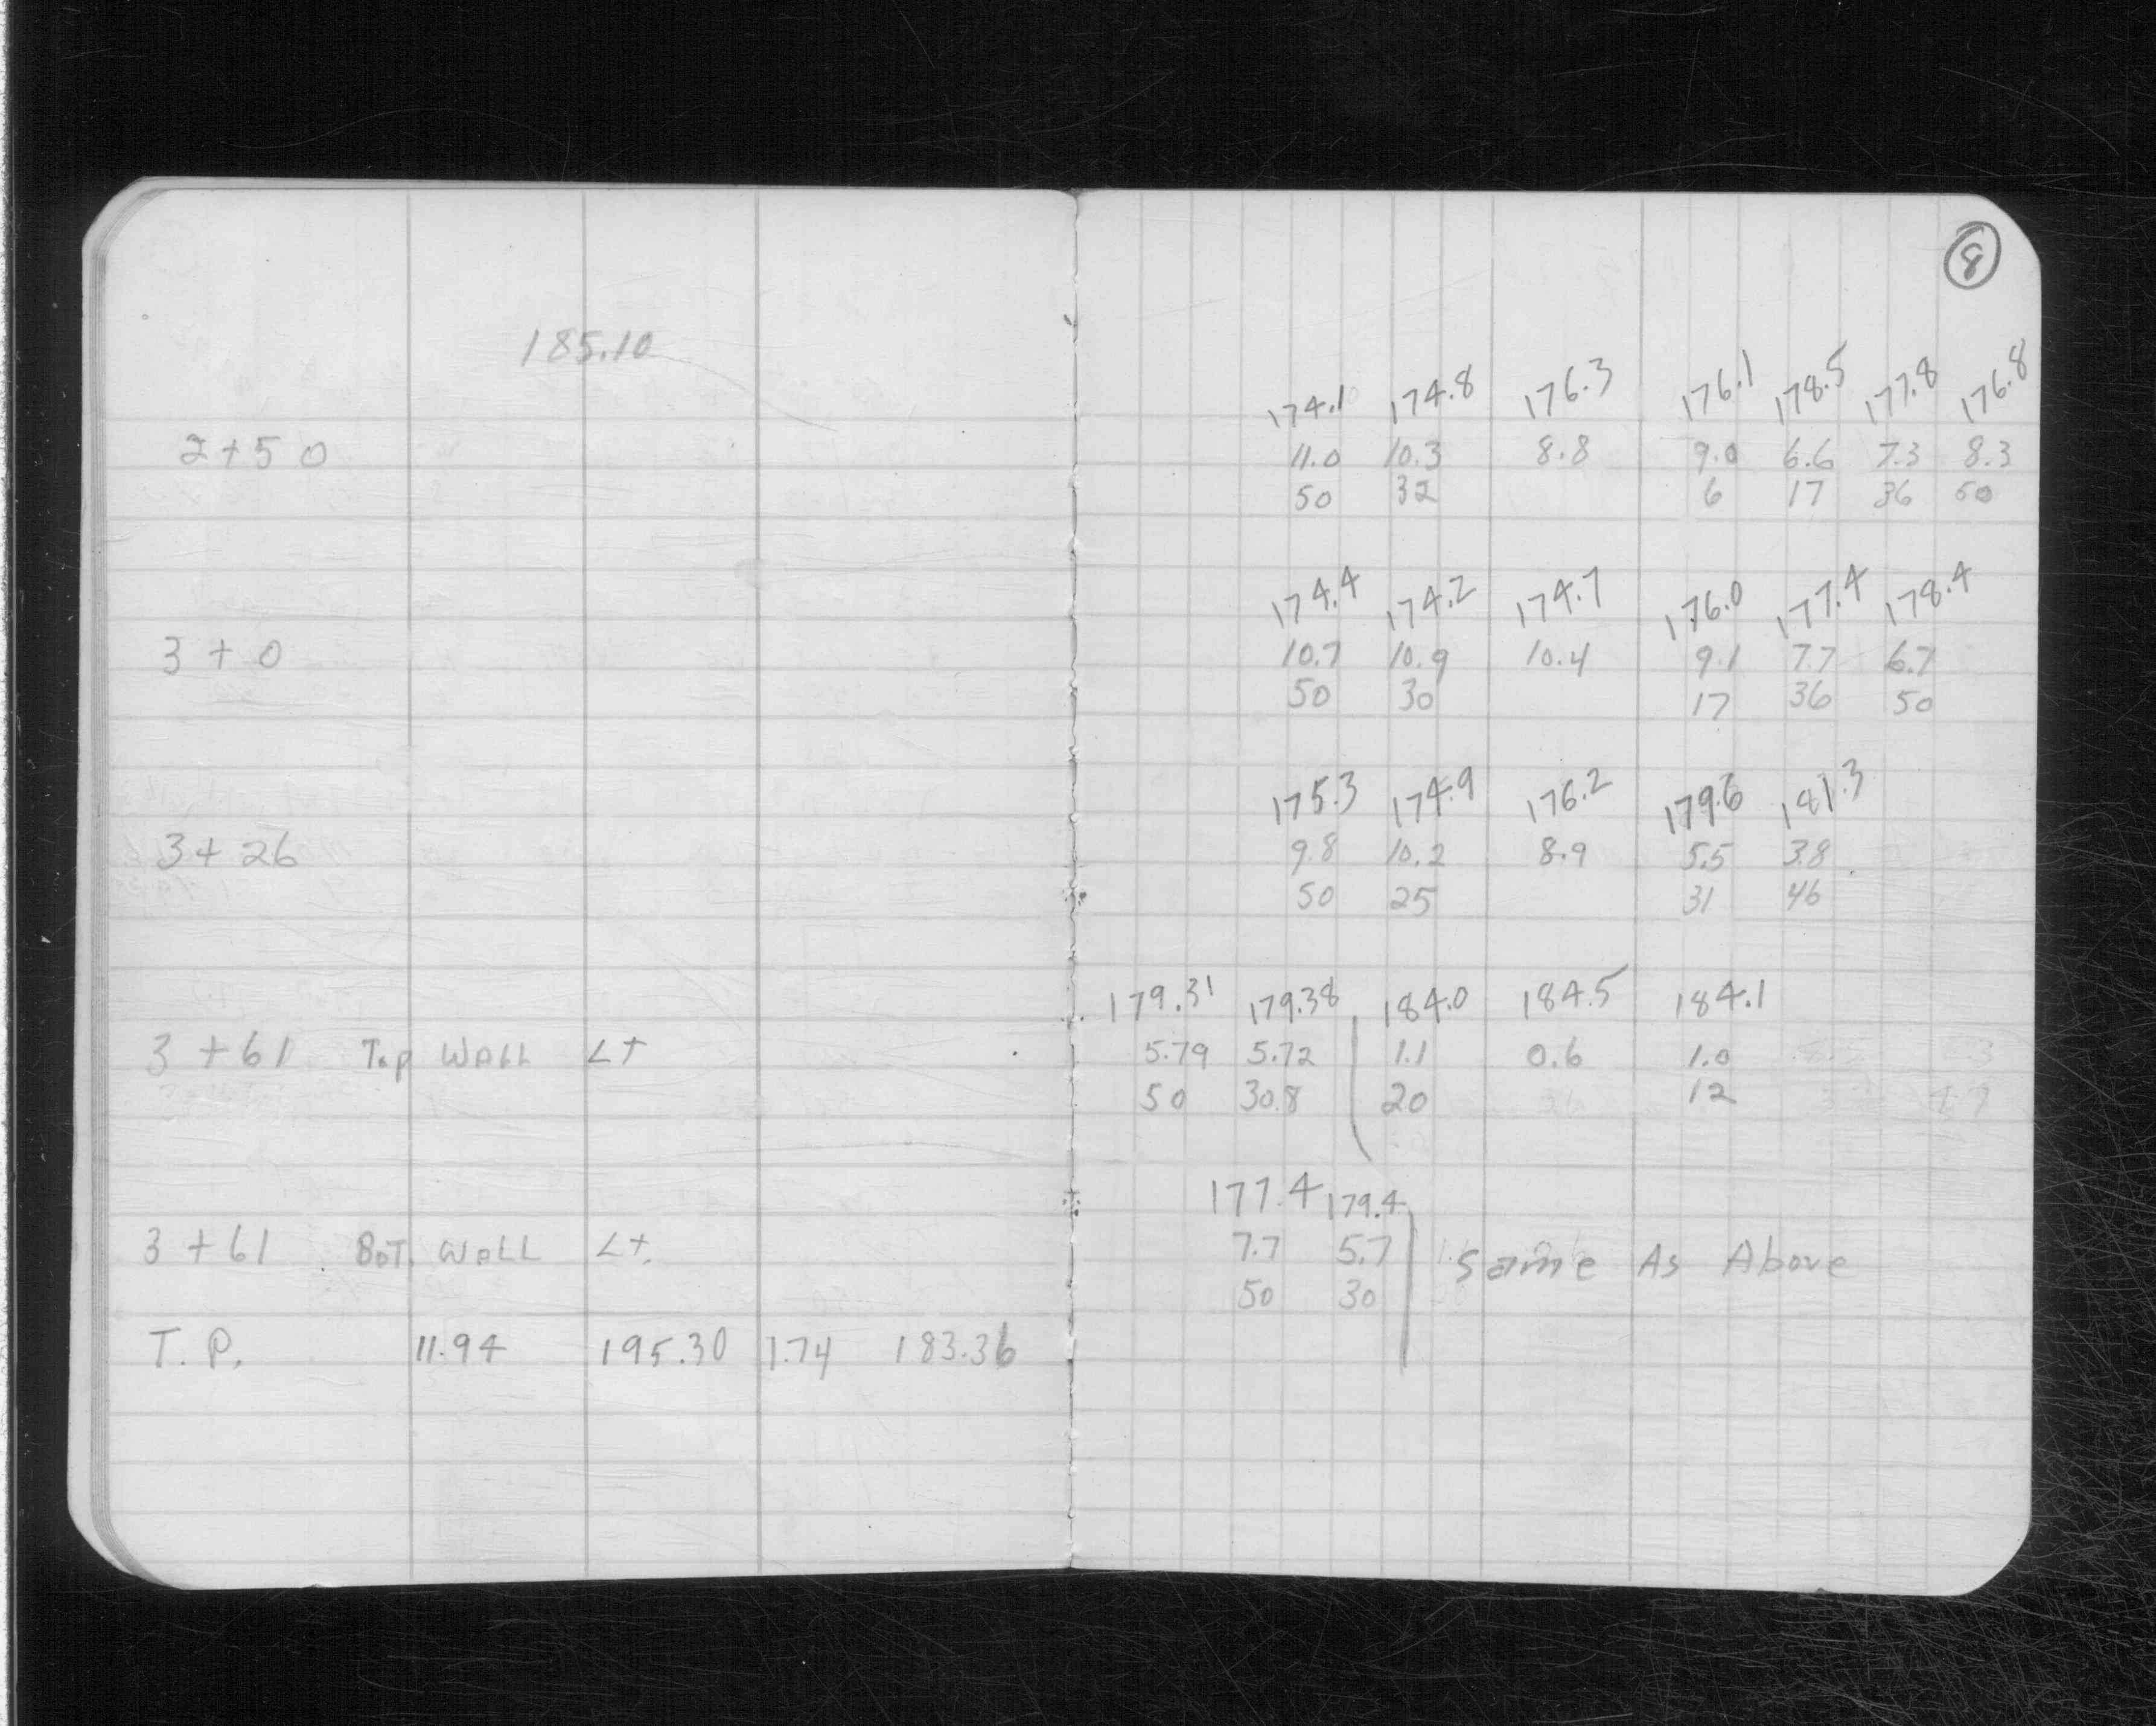 8
185.10
174.1 174.8 176.3 176.1 178.5 177.8 176.8
2+50 11.0 10.3 8.8 9.0 6.6 7.3 8.3
50 32 6 17 36 50
174.4 174.2 174.7 176.0 177.4 178.4
3+0 10.7 10.9 10.4 9.1 7.7 6.7
50 30 17 36 50
175.3 174.9 176.2 179.6 181.3
3+26 9.8 10.2 8.9 5.5 3.8
50 25 31 46
179.31 179.38 184.0 184.5 184.1
3+61 Top WALL LT 5.79 5.72 1.1 0.6 1.0
50 30.8 20 12
177.4 179.4
3+61 BOT. WALL LT. 7.7 5.7 Same As Above
50 30
T.P. 11.94 195.30 1.74 183.36